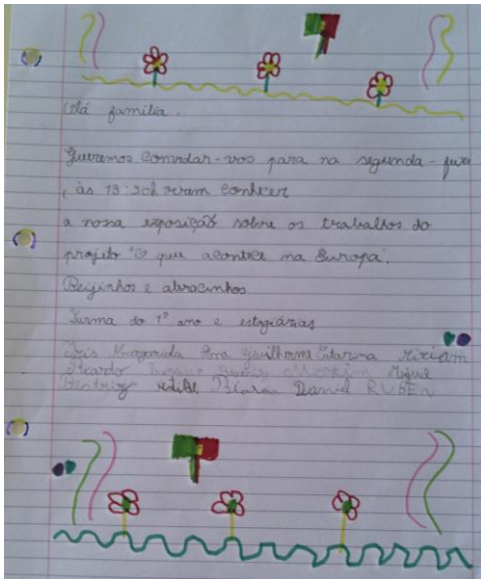 Olá família.
Queremos convidar-vos para na segunda-feira
, às 13:20h virem conhecer
a nossa exposição sobre os trabalhos do
projeto "O que acontece na Europa".
Beijinhos e abracinhos
Turma do 1º ano e estagiárias
Margarida Ana Guilherme Catarina Miriam
Ricardo Martim Miguel
Beatriz Daniel RUBEN